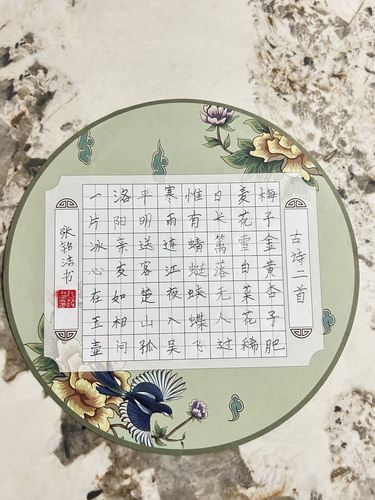 古诗二首
梅子金黄杏子肥
麦花雪白菜花稀
日长篱落无人过
惟有蜻蜓蛱蝶飞
寒雨连江夜入吴
平明送客楚山孤
洛阳亲友如相问
一片冰心在玉壶
张洁书